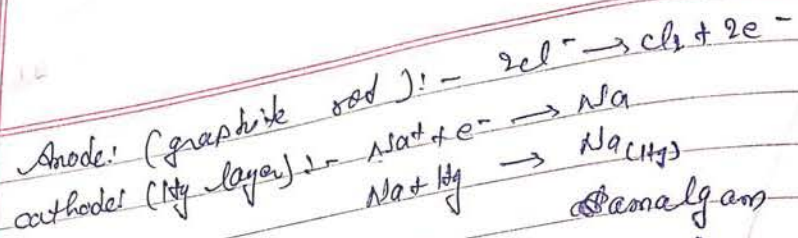 Anode: (graphite rod):- 2Cl⁻ → Cl₂ + 2e⁻
cathode: (Hg layer):- Na⁺ + e⁻ → Na
Na + Hg → Na(Hg)
amalgam